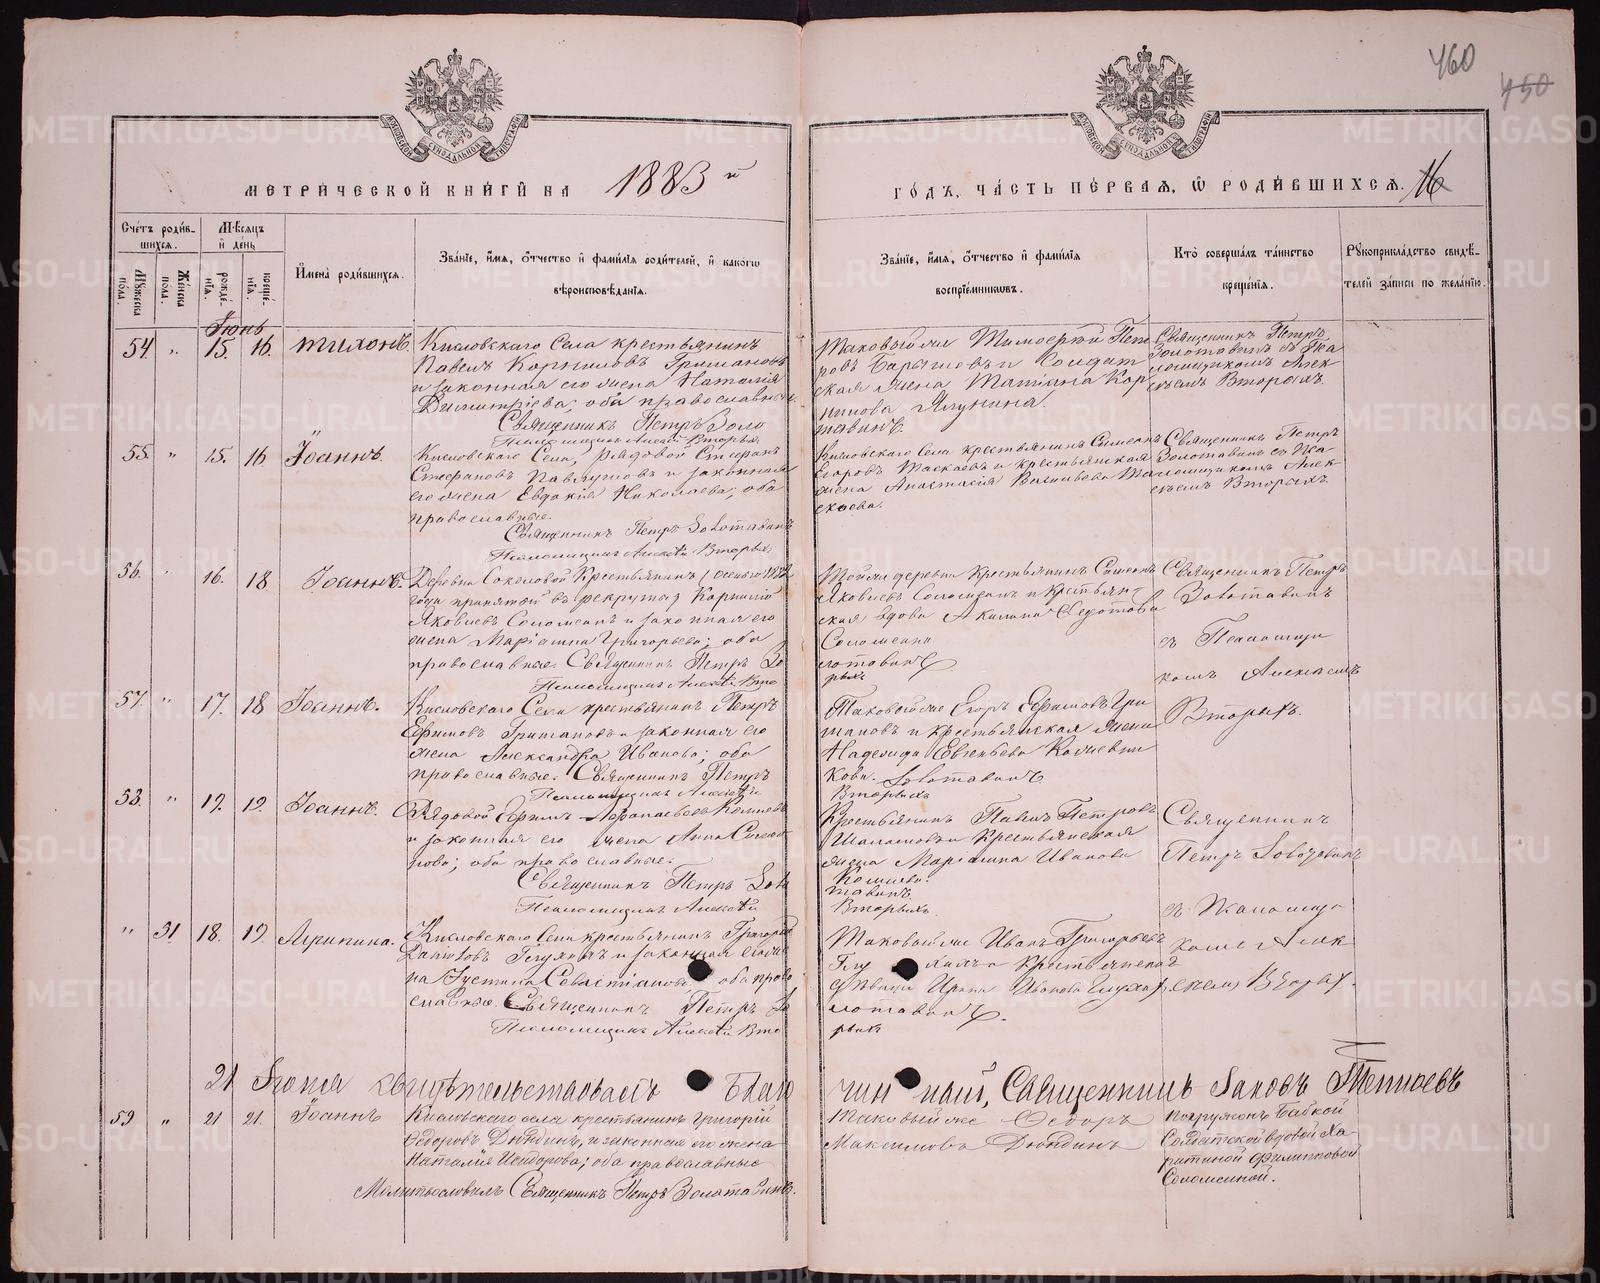 460
450
МОСКОВСКОЙ СѴНОДАЛЬНОЙ ТИПОГРАФІИ
МОСКОВСКОЙ СѴНОДАЛЬНОЙ ТИПОГРАФІИ
МЕТРИЧЕСКОЙ КНИГИ НА 1883 й
ГОДЪ, ЧАСТЬ ПЕРВАЯ, Ѿ РОДИВШИХСЯ. 16
Счетъ родив-
шихся.
Мужеска пола.
Женска пола.
Мѣсяцъ
и день
рожде-
нія.
креще-
нія.
Имена родившихся.
Званіе, имя, отчество и фамилія родителей, и какого
вѣроисповѣданія.
Званіе, имя, отчество и фамилія
воспріемниковъ.
Кто совершалъ таинство
крещенія.
Рукоприкладство свидѣ-
телей записи по желанію.
Іюнь
54 " 15. 16. Тихонъ.
Кисловскаго Села крестьянинъ
Павелъ Корниловъ Гришановъ
и законная его жена Наталія
Димитріева; оба православные
Священникъ Петръ Золо
Псаломщикъ Алексѣй Вторыхъ
Таковый же Тимоѳей Пет
ровъ Барышевъ и Солдат
ская жена Татіана Кор
нилова Ялунина.
тавинъ.
Священникъ Петръ
Золотавинъ съ Пса
ломщикомъ Алек
сѣемъ Вторыхъ.
55. " 15. 16 Іоаннъ.
Кисловскаго Села, рядовой Стефанъ
Стефановъ Павлушовъ и законная
его жена Евдокія Николаева; оба
православные.
Священникъ Петръ Золотавинъ
Псаломщикъ Алексѣй Вторыхъ
Кисловскаго Села крестьянинъ Симеонъ
Егоровъ Таскаевъ и крестьянская
жена Анастасія Васильева Та
скаева.
Священникъ Петръ
Золотавинъ съ Пса
ломщикомъ Алек
сѣемъ Вторыхъ.
56. " 16. 18 Іоаннъ.
Деревни Соколовой Крестьянинъ (осенью 1882
года принятой въ рекруты) Корнилій
Яковлевъ Соломеинъ и законная его
жена Маріамна Григорьева; оба
православные. Священникъ Петръ Зо
Псаломщикъ Алексѣй Вто
Той же деревни Крестьянинъ Симеонъ
Яковлевъ Соломеинъ и Крестьян-
ская вдова Акилина Ѳедотова
Соломеина
лотавинъ
рыхъ
Священникъ Петръ
Золотавинъ
съ Псаломщи
комъ Алексѣемъ
57. " 17. 18 Іоаннъ.
Кисловскаго Села крестьянинъ Петръ
Ефимовъ Гришановъ и законная его
жена Александра Иванова; оба
православные. Священникъ Петръ
Псаломщикъ Алексѣй
Таковый же Егоръ Ефимовъ Гри
шановъ и крестьянская жена
Надежда Евгеньева
кова. Золотавинъ
Вторыхъ
Вторыхъ.
58. " 19. 19. Іоаннъ.
Рядовой Ефимъ Аѳанасьевъ
и законная его жена Анна Симео
нова; оба православные.
Священникъ Петръ Золо
Псаломщикъ Алексѣй
Крестьянинъ Павелъ Петровъ
и Крестьянская
жена Маріамна Иванова
тавинъ
Вторыхъ.
Священникъ
Петръ Золотавинъ
съ Псаломщи
" 31 18. 19. Агрипина.
Кисловскаго Села крестьянинъ Григорій
Даниловъ Глухихъ и законная его же
на Іустина Севастіанова; оба право
славные. Священникъ Петръ Зо
Псаломщикъ Алексѣй Вто
Таковый же Иванъ Григорьевъ
Глухихъ и Крестьянская
дѣвица Ирина Иванова Глухихъ
лотавинъ.
рыхъ
комъ Алек
сѣемъ Вторыхъ.
21 Іюня свидѣтельствовалъ Благочинный, Священникъ Іаковъ
59 " 21 21. Іоаннъ
Кисловскаго села крестьянинъ Григорій
Ѳедоровъ Дюндинъ, и законная его жена
Наталія Исидорова; оба православные
Молитвословилъ Священникъ Петръ Золотавинъ.
Таковый же Ѳедоръ
Максимовъ Дюндинъ
погруженъ Бабкой
Солдатской вдовой Ха-
ритиной Филипповой
Соломеиной.
METRIKI.GASO-URAL.RU